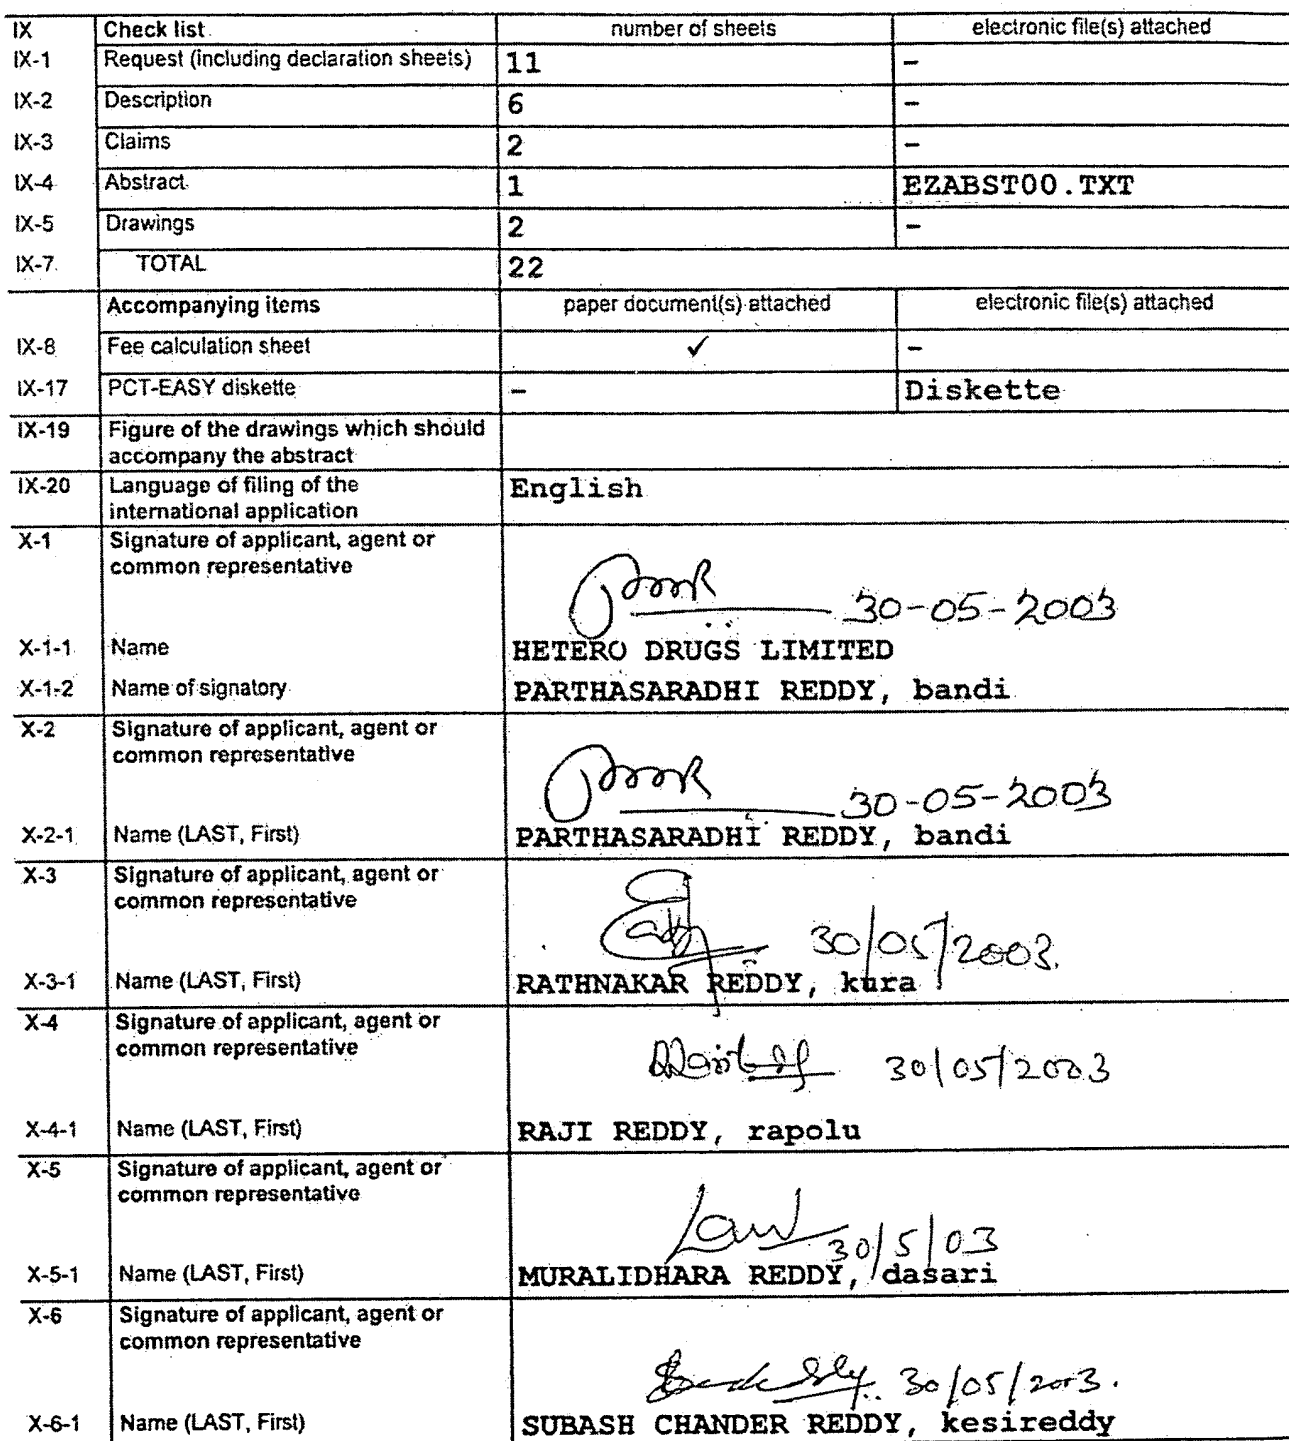 IX Check list number of sheets electronic file(s) attached
IX-1 Request (including declaration sheets) 11 –
IX-2 Description 6 –
IX-3 Claims 2 –
IX-4 Abstract 1 EZABST00.TXT
IX-5 Drawings 2 –
IX-7 TOTAL 22
Accompanying items paper document(s) attached electronic file(s) attached
IX-8 Fee calculation sheet ✓ –
IX-17 PCT-EASY diskette – Diskette
IX-19 Figure of the drawings which should
accompany the abstract
IX-20 Language of filing of the English
international application
X-1 Signature of applicant, agent or
common representative
30-05-2003
X-1-1 Name HETERO DRUGS LIMITED
X-1-2 Name of signatory PARTHASARADHI REDDY, bandi
X-2 Signature of applicant, agent or
common representative
30-05-2003
X-2-1 Name (LAST, First) PARTHASARADHI REDDY, bandi
X-3 Signature of applicant, agent or
common representative
30/05/2003.
X-3-1 Name (LAST, First) RATHNAKAR REDDY, kura
X-4 Signature of applicant, agent or
common representative
30/05/2003
X-4-1 Name (LAST, First) RAJI REDDY, rapolu
X-5 Signature of applicant, agent or
common representative
30/5/03
X-5-1 Name (LAST, First) MURALIDHARA REDDY, dasari
X-6 Signature of applicant, agent or
common representative
30/05/2003.
X-6-1 Name (LAST, First) SUBASH CHANDER REDDY, kesireddy